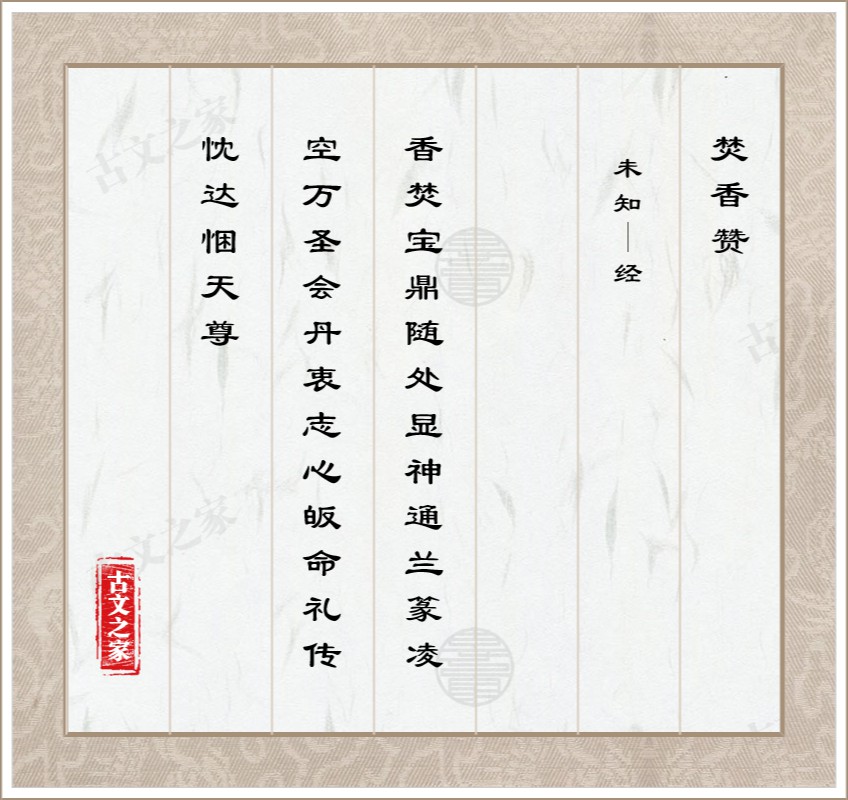 焚香赞
未知—经
香焚宝鼎随处显神通兰篆凌
空万圣会丹衷志心皈命礼传
忱达悃天尊
古文之家
古文之家
古文之家